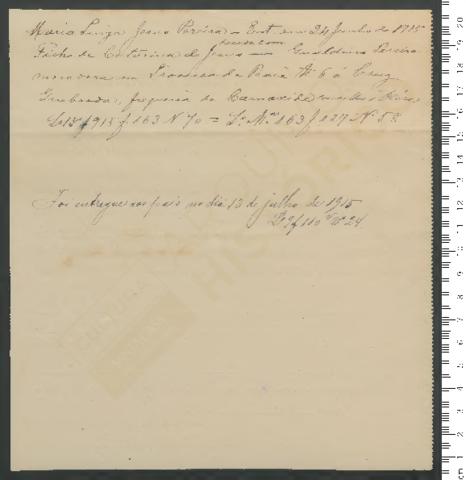 Maria Luiza Joana Pereira – Ent. em 24 Junho de 1915
Filha de Catarina de Jesus — Gualdino Pereira
moradora em Travessa da Praia Nº 6 á Cruz
Quebrada, freguesia de Carnaxide
Lº 15 f 163 N 70 = Lº Mº 163 f 127 Nº 5
Foi entregue aos pais no dia 13 de julho de 1915
Lº 9 f 110 Nº 24